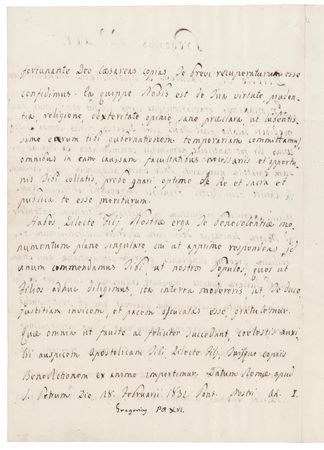 fortunante Deo Cæsareas copias, Te brevi recuperaturum esse
confidimus. Ea quippe Nobis est de Tua virtute, pruden-
tia, religione, dexteritate opinio sane præclara, ut
sime earum tibi gubernationem temporariam committamus
omnibus in eam caussam facultatibus necessariis et opportu-
nis Tibi collatis, probe gnari optime Te de re et sacra et
publica te esse meriturum.
Habes Dilecte Fili Nostræ erga Te benevolentiæ mo-
numentum plane singulare, cui ut apprime respondeas
enum commendamus Tibi, ut nostros Populos, quos ut
Filios adhuc diligimus, ita interea modereris, ut Te Duce
justitiam invicem, et pacem osculatas esse, gratulemur.
Quæ omnia ut fauste ac feliciter succedant, coelestis auxi-
lii auspicem Apostolicam Tibi Dilecte Fili, Tuisque copiis
Benedictionem ex animo impertimur. Datum Romæ apud
S. Petrum Die 28. Februarii 1832. Pont. Nostri An. I.
Gregorius PP. XVI.